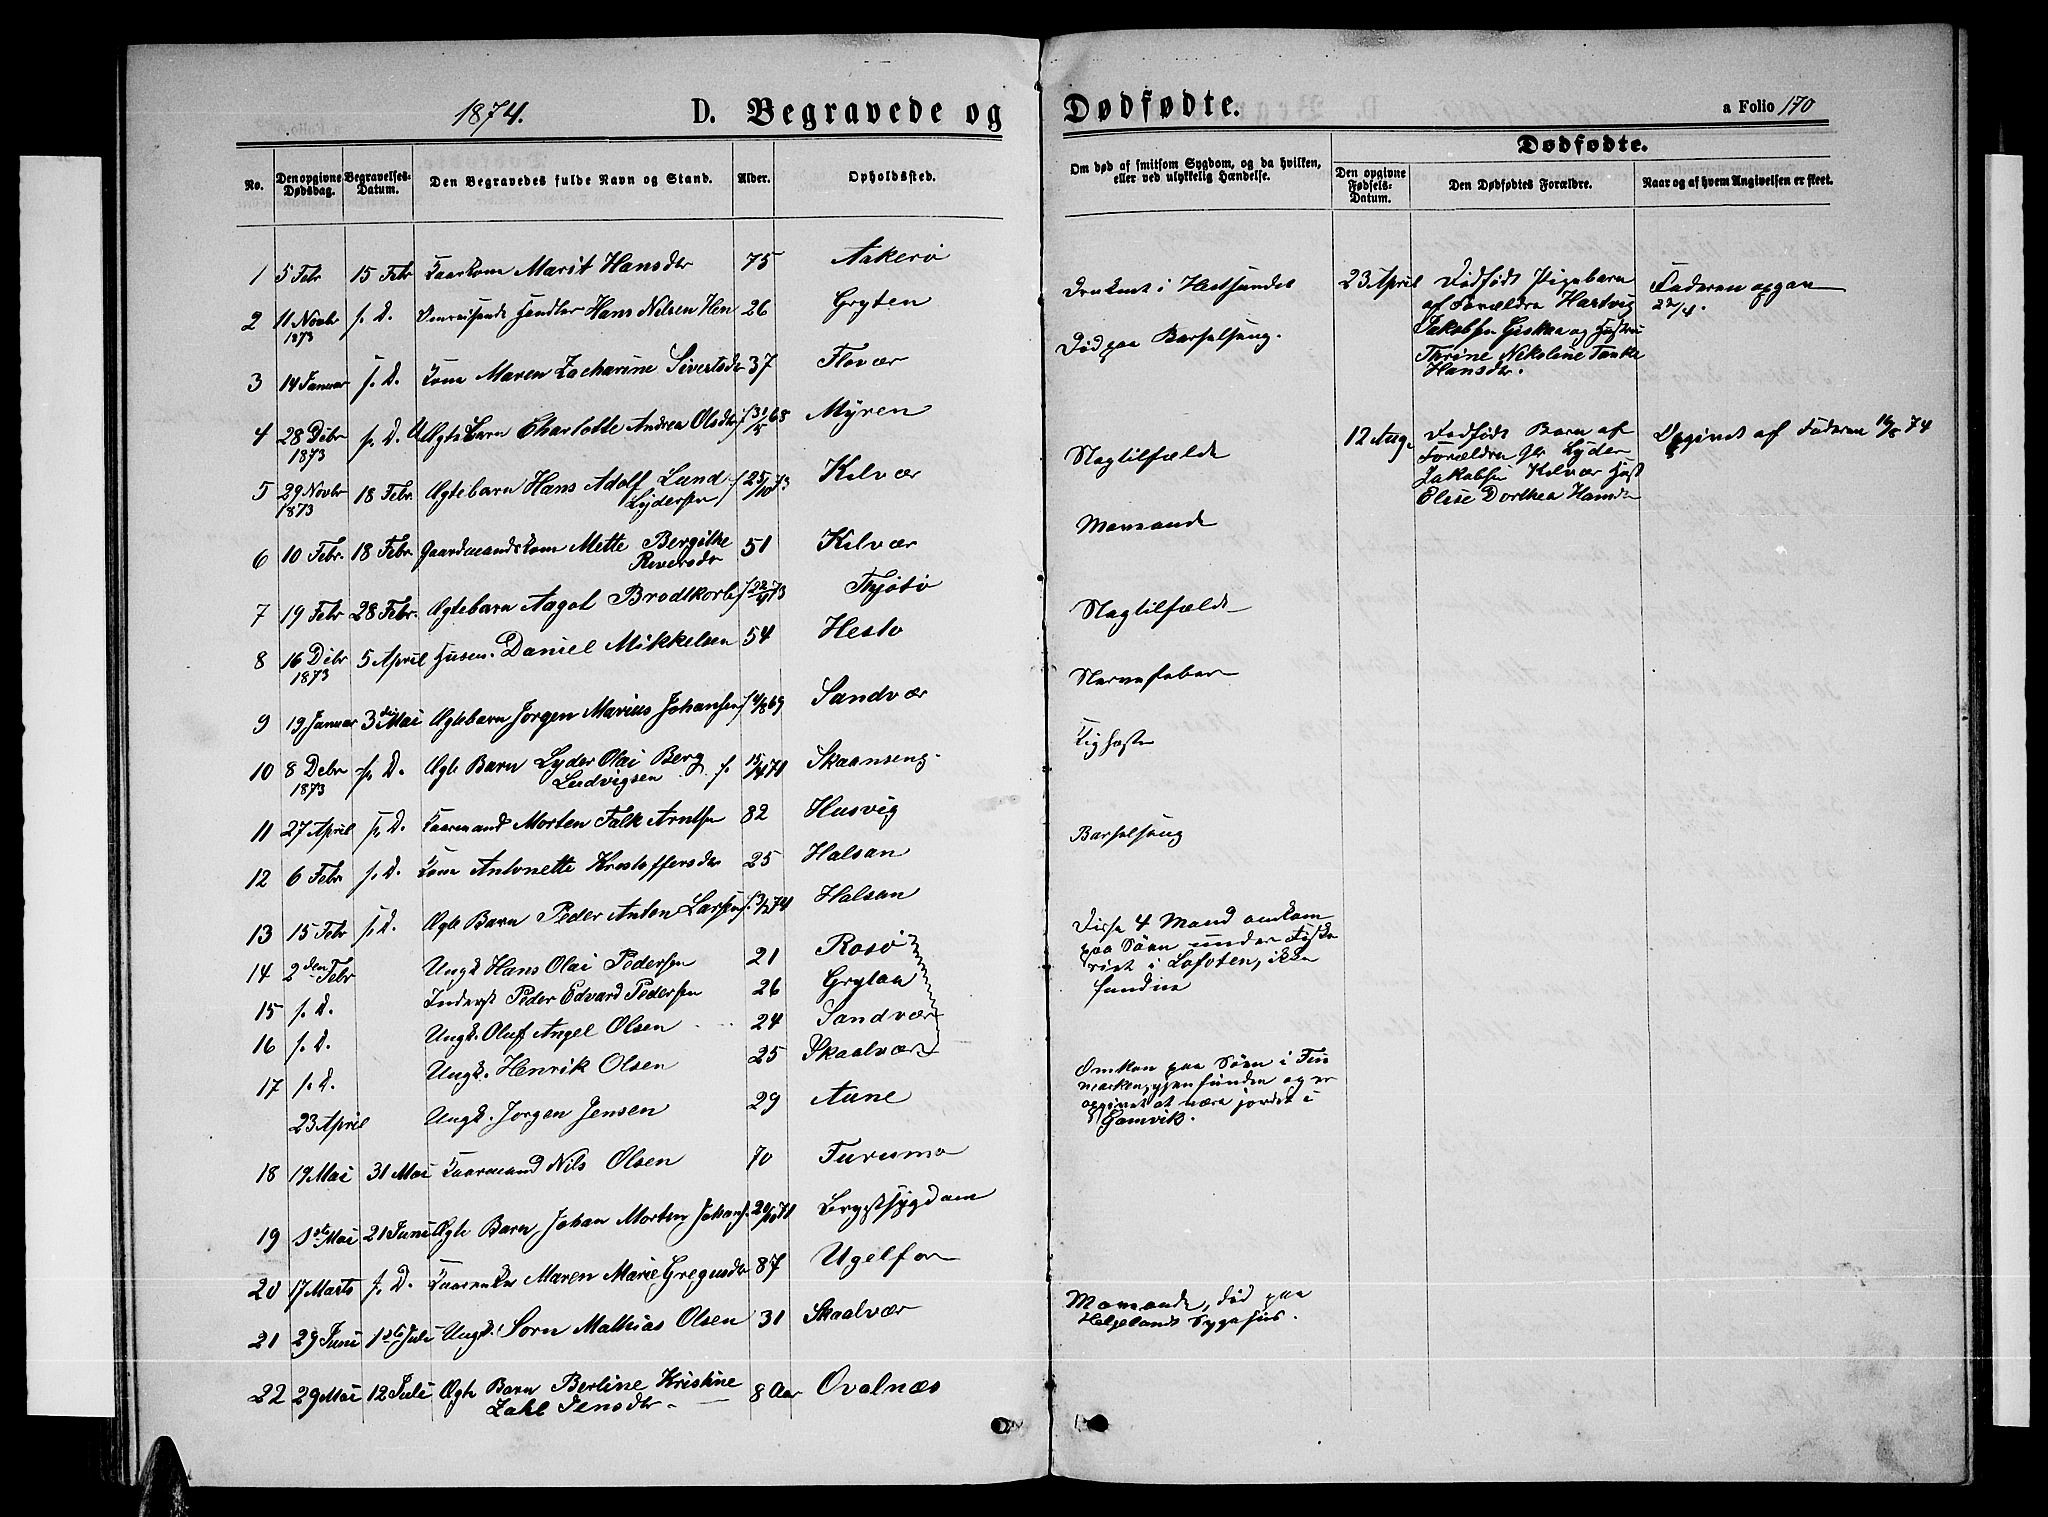 1874. D. Begravede og Dødfødte. a Folio 170
No. Den opgivne Dødsdag. Begravelses-Datum. Den Begravedes fulde Navn og Stand. Alder. Opholdssted.
1 5 Febr 15 Febr Marit Hansdtr 75 Aakerø
2 11 Novbr 1873 s. D. Handler Hans Nilsen 26 Gryten
3 14 Januar s. D. Kone Maren Zacharine Sivertsdtr 37 Flovær
4 28 Debr 1873 s. D. Ægte Barn Charlotte Andrea Olsdtr f 31/5 68 Myren
5 29 Novbr 1873 18 Febr. Ægtebarn Hans Adolf Lund Lydersen f 25/10 73 Kilvær
6 10 Febr. 18 Febr. Gaardmandskone Mette Bergitte 51 Kilvær
7 19 Febr 28 Febr. Ægtebarn Aagot Brodtkorb f 22/11 73 Thjøtø
8 16 Debr 1873 5 April Husm. Daniel Mikkelsen 54 Hestø
9 19 Januar 3die Mai Ægtebarn Jørgen Marius Johansen f 4/8 69 Sandvær
10 8 Debr 1873 s. D. Ægte Barn Lyder Olai Berg Ludvigsen f. 15/4 71 Skaanseng.
11 27 April s. D. Kaarmand Morten Falk Arntsen 82 Husvig
12 6 Febr s. D. Kone Antonette Kristoffersdtr 25 Halsan
13 15 Febr s. D. Ægte Barn Peder Anton Larsen f. 3/2 74 Halsan
14 2den Febr Ungk. Hans Olai Pedersen 21 Rosø
15 s. D. Inderst Peder Edvard Pedersen 26 Gryten
16 s. D. Ungk. Oluf Angel Olsen 24 Sandvær
17 s. D. Ungk. Henrik Olsen 25 Skaalvær
23 April Ungk. Jørgen Jensen 29 Aune
18 19 Mai 31 Mai Kaarmand Nils Olsen 70 Furumo
19 1ste Mai 21 Juni Ægte Barn Johan Morten Johans. 20/10 71 Brystsygdom
20 17 Marts s. D. Maren Marie Gregusdtr 87 Ugelfor
21 29 Juni 1ste Juli Ungk. Sørn Mathias Olsen 31 Skaalvær
22 29 Mai 12 Juli Ægte Barn Berline Kristine Jensdtr 8 Aar
Om død af smitsom Sygdom, og da hvilken,
eller ved ulykkelig Hændelse.
Druknet i Hestsundet
Død paa Barselseng.
Slagtilfælde
Marvande
Slagtilfælde
Nervefeber
Kighoste
Barselseng
Disse 4 Mand omkom
paa Søen under Fiske
riet i Lofoten, ikke
fundne
Omkom paa Søen i Fin
marken, igjenfunden og er
opgivet at være jordet i
Gamvik.
Marvande, død paa
Helgelands Sygehus.
Dødfødte.
Den opgivne Fødsels-Datum. Den Dødfødtes Forældre. Naar og af hvem Angivelsen er skeet.
23 April Dødfødt Pigebarn Faderen opgav
af Forældre Hartvig 27/4.
Jakobsen og Hustru
Thrine Nikoline Tanke
Hansdtr.
12 Aug. Dødfødt Barn af Opgivet af Faderen 16/8 74
Forældre Lyder
Jakobsen Kilvær Hust
Elise Dorthea Hansdtr